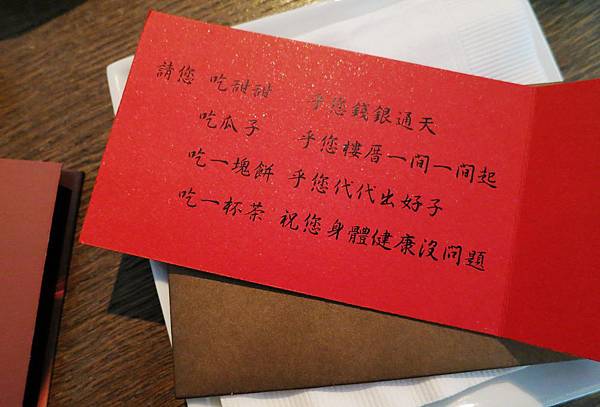 請您 吃甜甜 乎您錢銀通天
吃瓜子 乎您樓厝一間一間起
吃一塊餅 乎您代代出好子
吃一杯茶 祝您身體健康沒問題